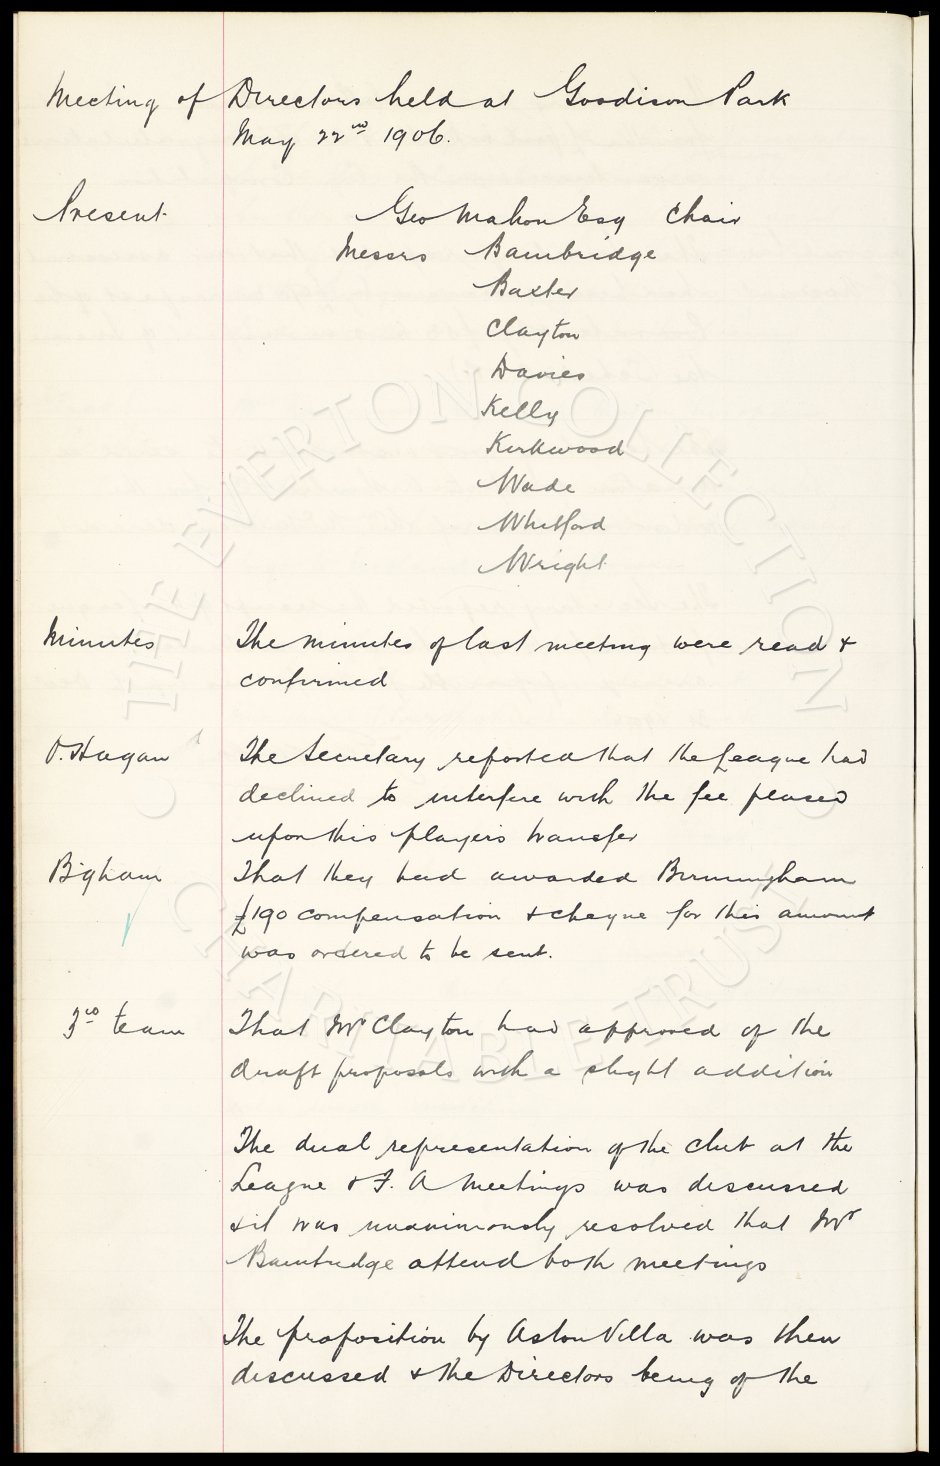 Meeting of Directors held at Goodison Park
May 22nd 1906.
Present Geo Mahon Esq Chair
Messrs Bainbridge
Baxter
Clayton
Davies
Kelly
Kirkwood
Wade
Whitford
Wright
Minutes The minutes of last meeting were read &
confirmed
O.Hagan The Secretary reported that the League had
declined to interfere with the fee placed
upon this players transfer
Bigham That they had awarded Birmingham
£190 compensation & cheque for this amount
was ordered to be sent.
3rd team That Mr Clayton had approved of the
draft proposals with a slight addition
The dual representation of the club at the
League & F. A Meetings was discussed
& it was unanimously resolved that Mr
Bainbridge attend both meetings
The proposition by Aston Villa was then
discussed & the Directors being of the
© THE EVERTON COLLECTION
CHARITABLE TRUST